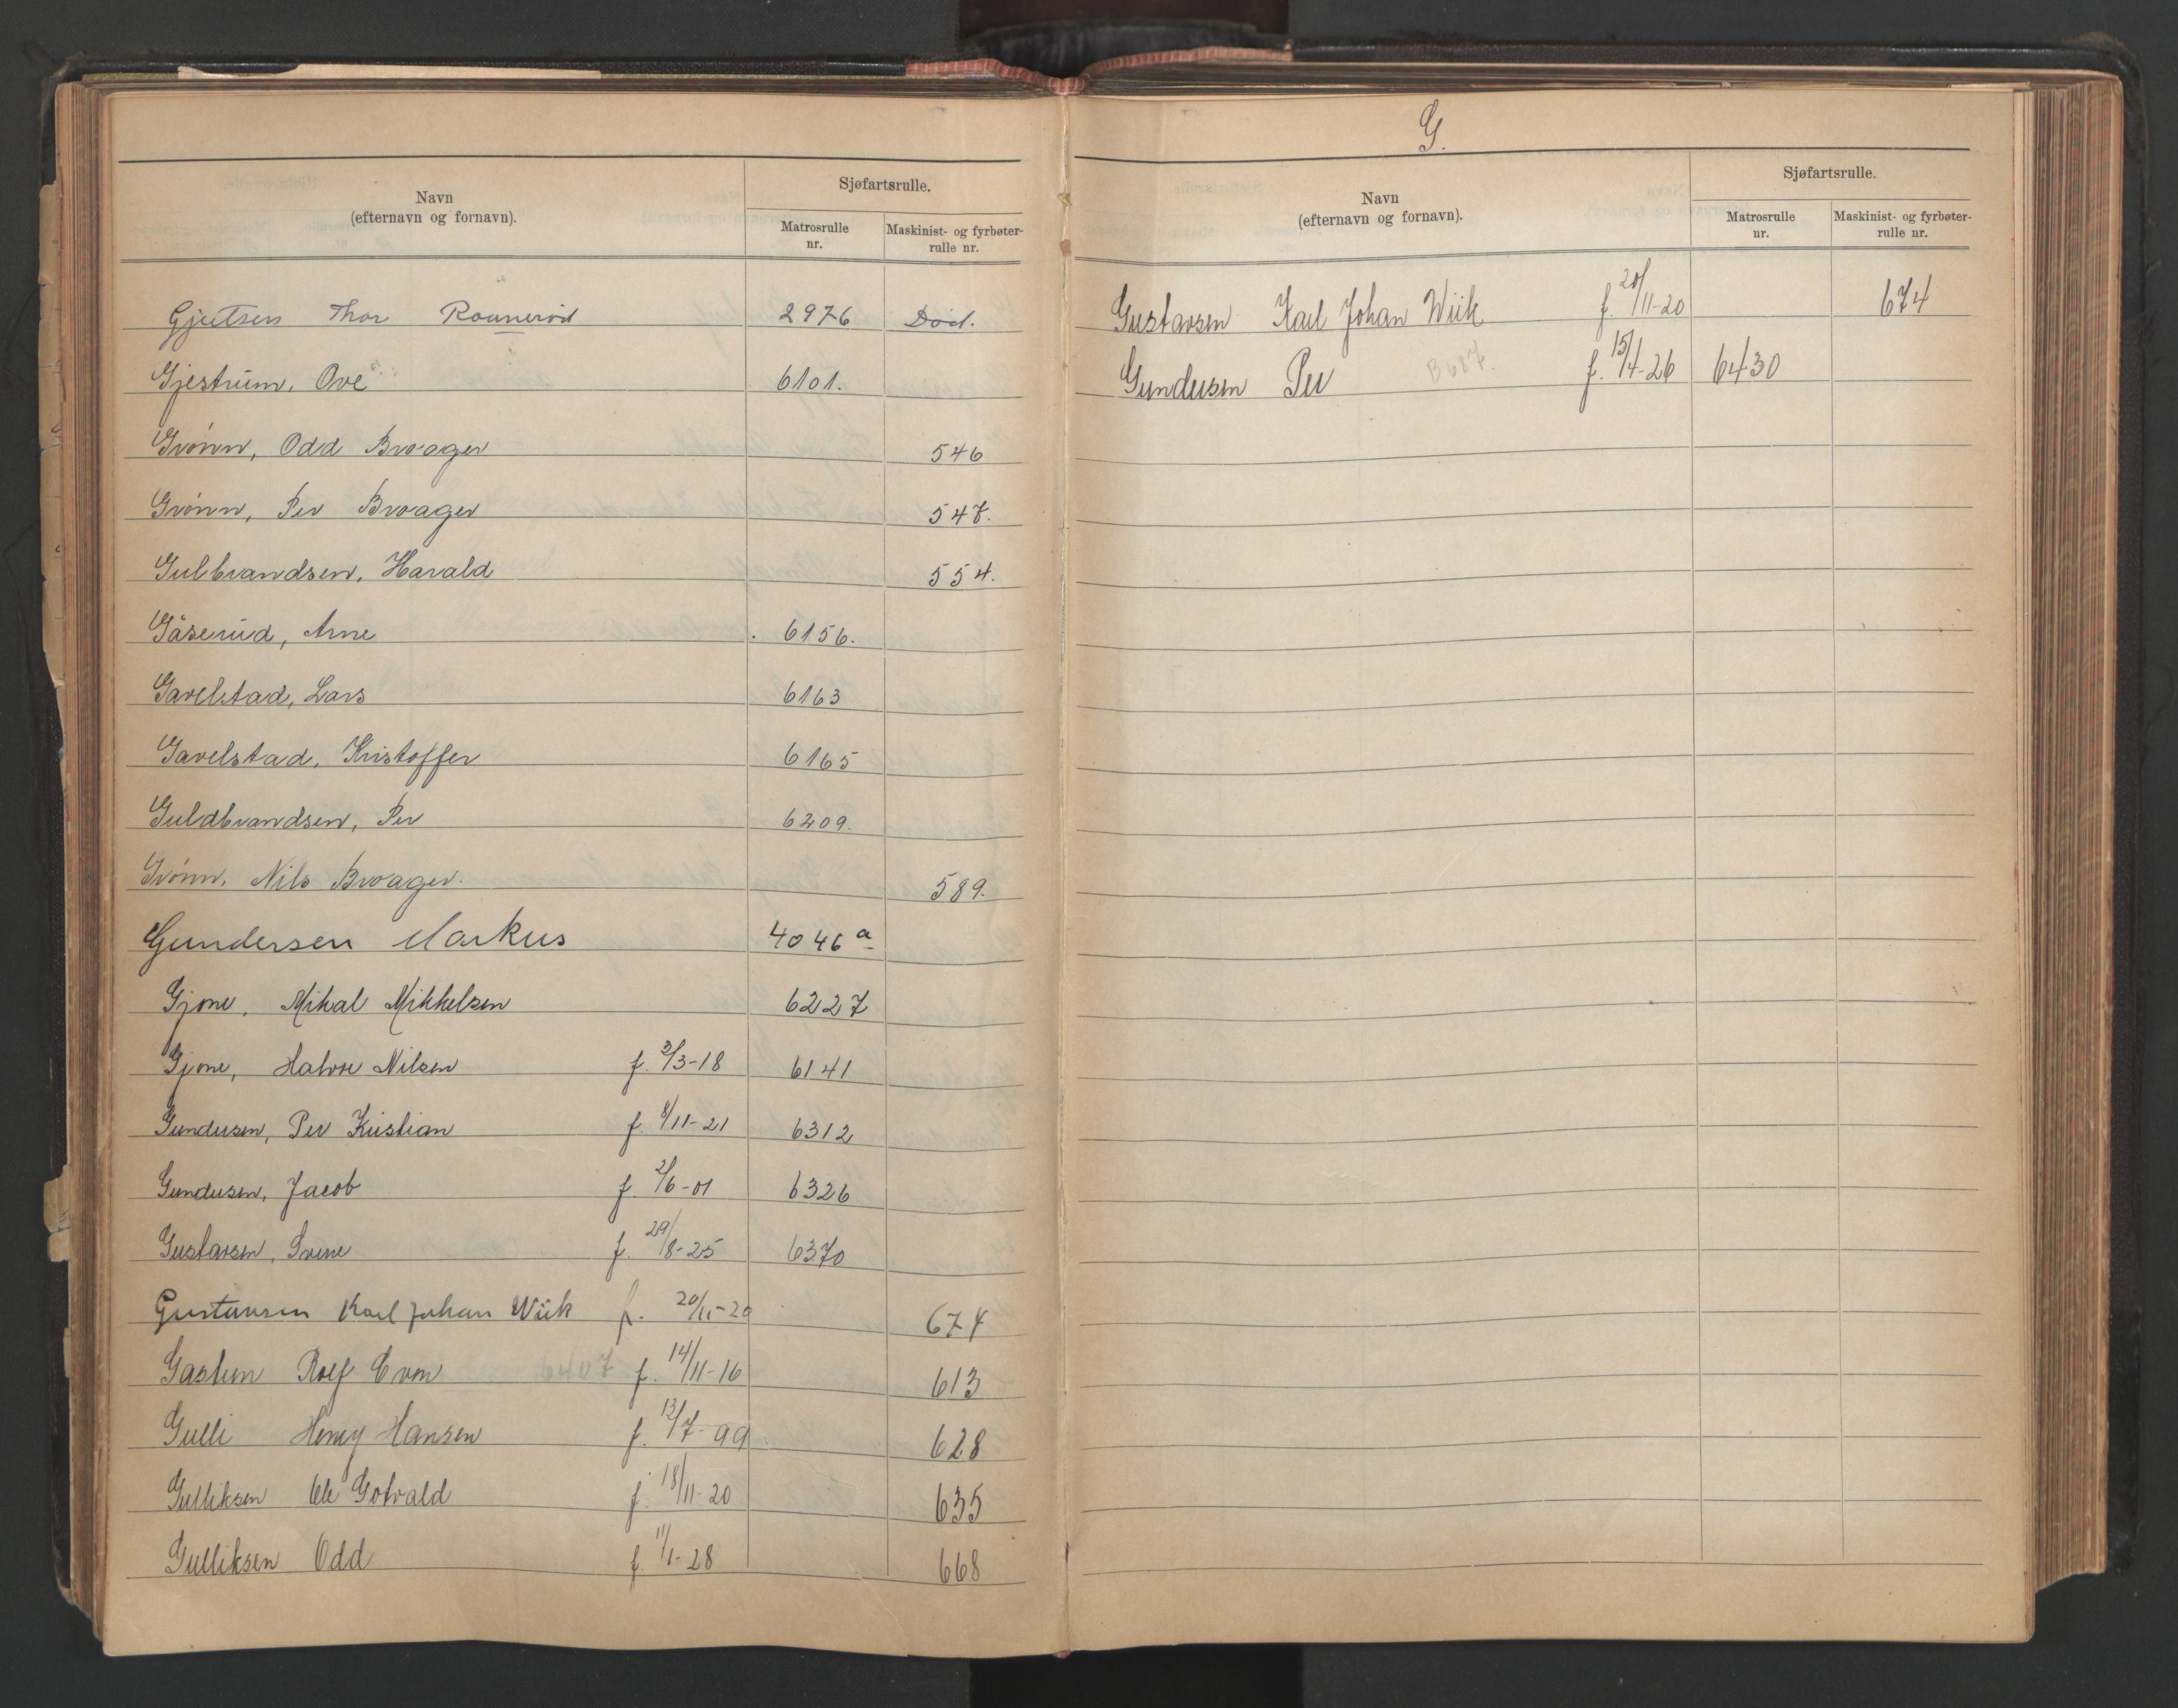 Navn
(efternavn og fornavn).
Sjøfartsrulle.
Matrosrulle
nr.
Maskinist- og fyrbøter-
rulle nr.
Gjertsen Thor Rounerød 2976 Død.
Gjestrum, Ove 6101.
Grønn, Odd Broager 546
Grønn, Per Broager 547.
Gulbrandsen, Harald 554.
Gåserud, Arne 6156.
Gavelstad, Lars 6163
Gavelstad, Kristoffer 6165
Guldbrandsen, Per 6209.
Grønn, Nils Broager. 589.
Gundersen Markus 4046 a
Gjone, Mikal Mikkelsen 6227
Gjone, Halvor Nilsen f. 3/3-18 6141
Gundersen, Per Kristian f. 8/11-21 6312
Gundersen, Jacob f. 2/6-01 6326
Gustavsen, Svene f. 29/8-25 6370
Gustavsen Karl Johan Wiik f. 20/11-20 674
Rolf 6407 f. 14/11-16 613
Gulli Henry Hansen f. 13/7-99 628
Gulliksen Ole Gotvald f. 18/11-20 635
Gulliksen Odd f. 11/1-28 668
G.
Navn
(efternavn og fornavn).
Sjøfartsrulle.
Matrosrulle
nr.
Maskinist- og fyrbøter-
rulle nr.
Gustavsen Karl Johan Wiik f. 20/11-20 674
Gundersen Per B687. f. 15/4-26 6430